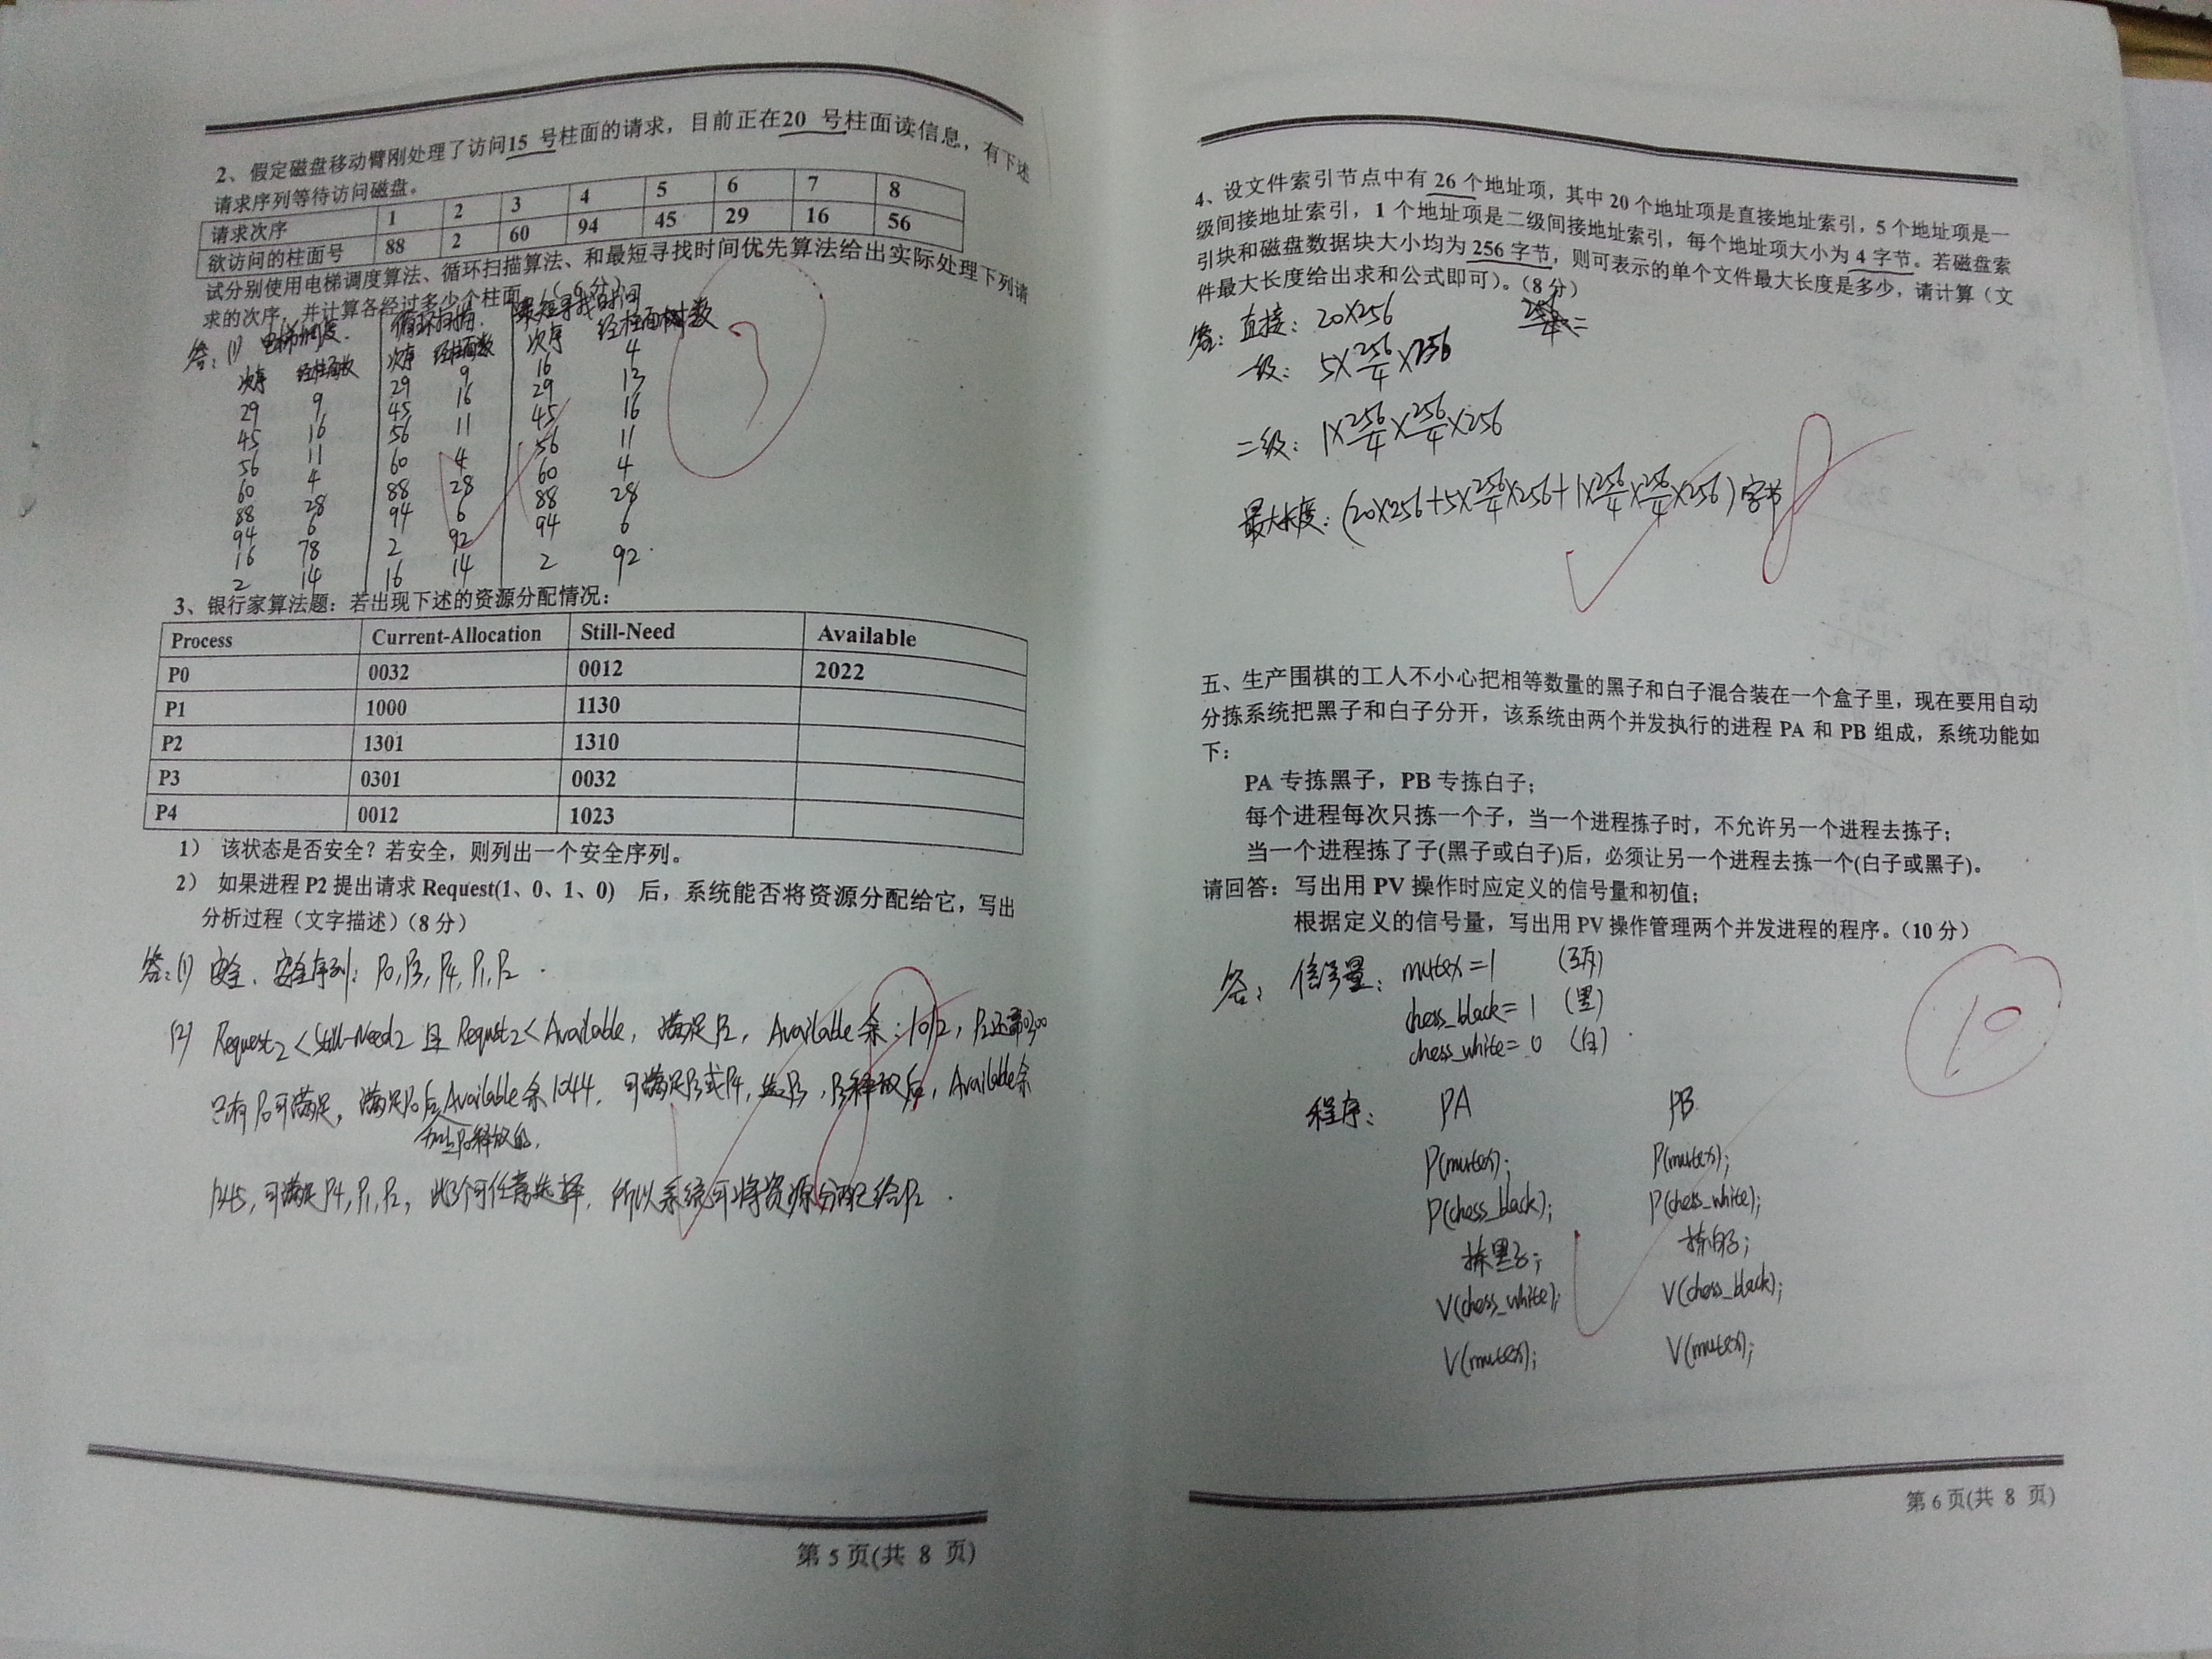 2、假定磁盘移动臂刚处理了访问15 号柱面的请求，目前正在20 号柱面读信息，有下述
请求序列等待访问磁盘。
请求次序 1 2 3 4 5 6 7 8
欲访问的柱面号 88 2 60 94 45 29 16 56
试分别使用电梯调度算法、循环扫描算法、和最短寻找时间优先算法给出实际处理下列请
求的次序，并计算各经过多少个柱面。（6分）
答：(1) 电梯调度. 循环扫描. 最短寻找时间
次序 经柱面数 次序 经柱面数 次序 经柱面数
29 9 29 9 16 4
45 16 45 16 29 13
56 11 56 11 45 16
60 4 60 4 56 11
88 28 88 28 60 4
94 6 94 6 88 28
16 78 2 92 94 6
2 14 16 14 2 92.
3
3、银行家算法题：若出现下述的资源分配情况：
Process Current-Allocation Still-Need Available
P0 0032 0012 2022
P1 1000 1130
P2 1301 1310
P3 0301 0032
P4 0012 1023
1） 该状态是否安全？若安全，则列出一个安全序列。
2） 如果进程 P2 提出请求 Request(1、0、1、0) 后，系统能否将资源分配给它，写出
分析过程（文字描述）（8 分）
答：(1) 安全、安全序列：P0, P3, P4, P1, P2 .
(2) Request2 < Still-Need2 且 Requst2 < Available，满足P2，Available余：1012，P2还需0300
只有P0可满足，满足P0后Available余1044，可满足P3或P4，选P3，P3释放后，Available余
加上P0释放的，
1345，可满足P4, P1, P2，此3个可任意选择，所以系统可将资源分配给P2 .
8
第 5 页(共 8 页)
4、设文件索引节点中有 26 个地址项，其中 20 个地址项是直接地址索引，5 个地址项是一
级间接地址索引，1 个地址项是二级间接地址索引，每个地址项大小为 4 字节。若磁盘索
引块和磁盘数据块大小均为 256 字节，则可表示的单个文件最大长度是多少，请计算（文
件最大长度给出求和公式即可）。（8 分）
答：直接：20×256
一级：5×256/4×256
二级：1×256/4×256/4×256
最大长度：(20×256+5×256/4×256+1×256/4×256/4×256) 字节
8
五、生产围棋的工人不小心把相等数量的黑子和白子混合装在一个盒子里，现在要用自动
分拣系统把黑子和白子分开，该系统由两个并发执行的进程 PA 和 PB 组成，系统功能如
下：
PA 专拣黑子，PB 专拣白子；
每个进程每次只拣一个子，当一个进程拣子时，不允许另一个进程去拣子；
当一个进程拣了子(黑子或白子)后，必须让另一个进程去拣一个(白子或黑子)。
请回答：写出用 PV 操作时应定义的信号量和初值；
根据定义的信号量，写出用 PV 操作管理两个并发进程的程序。（10 分）
答：信号量：mutex=1 (互斥)
chess_black=1 (黑)
chess_white=0 (白) .
10
程序： PA PB
P(mutex); P(mutex);
P(chess_black); P(chess_white);
拣黑子; 拣白子;
V(chess_white); V(chess_black);
V(mutex); V(mutex);
第 6 页(共 8 页)